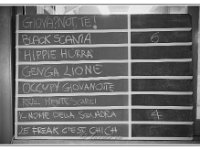 GIOVANOTTE!
BLACK SCANIA 6
HIPPIE HURRÀ
GENGA LIONE
OCCUPY GIOVANOTTE
IL NOME DELLA SQUADRA 4
LE FREAK C'EST CHICH